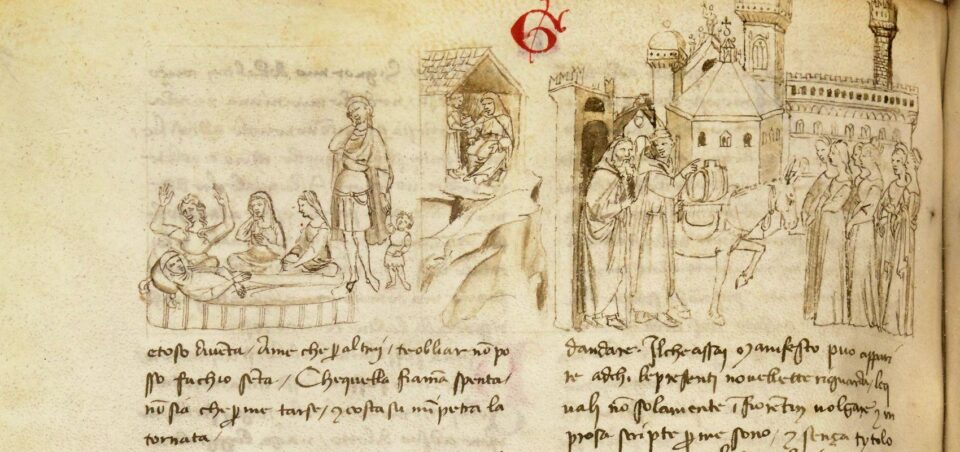 G
etoso diventa / Ame che ꝑ altrui / te obliar nõ po
sso fachio senta / Che quella fiamma spenta /
nõ sia che ꝑ me tarse / ⁊ costa su mĩpetra la
tornata /
dandare. Ilche assai manifesto puo appari
re adchi le presenti novellette riguarda / le q
uali nõ solamente ĩ fiorentin volgare ⁊ in
prosa scripte ꝑ me sono / ⁊ senza tytolo